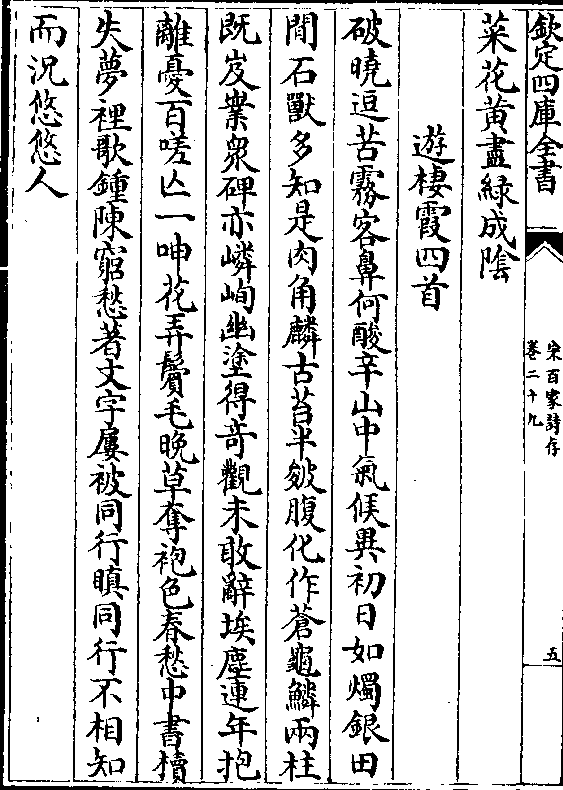 欽定四庫全書
宋百家詩存
卷二十九
五
菜花黄盡緑成隂
遊棲霞四首
破曉逗苦霧客鼻何酸辛山中氣候異初日如燭銀田
間石獸多知是肉角麟古苔半皴腹化作蒼龜鱗兩柱
既岌嶪衆碑亦嶙峋幽塗得竒觀未敢辭埃塵連年抱
離憂百嗟亾一呻花弄鬢毛晚草奪袍色春愁中書櫝
失夢裡歌鍾陳窮愁著文字屢被同行瞋同行不相知
而況悠悠人